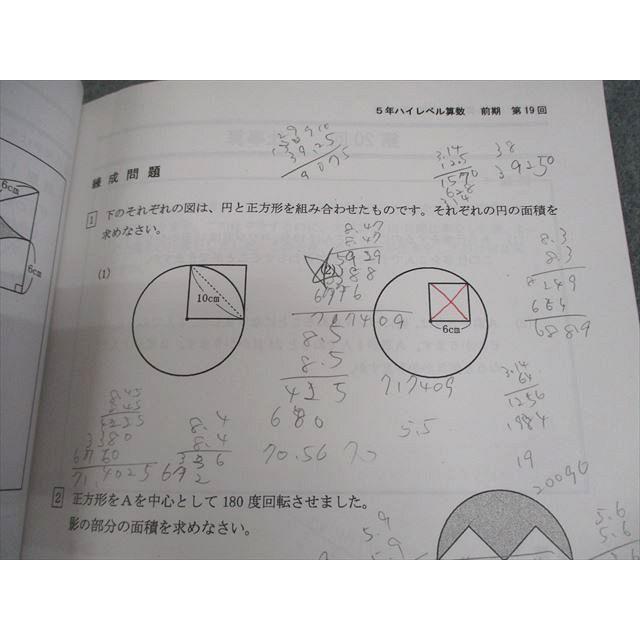 5年ハイレベル算数 前期 第19回
練成問題
1 下のそれぞれの図は、円と正方形を組み合わせたものです。それぞれの円の面積を
求めなさい。
(1)
10cm
6cm
6cm
6cm
3.14
38
39250
8.47
8.47
717409
8.5
8.5
425
680
70.56
70
717409
5.5
8.3
8.3
249
664
6889
3.14
64
1256
1984
19
20090
8.4
8.4
3380
6760
71.4025
2 正方形をAを中心として180度回転させました。
影の部分の面積を求めなさい。
5.9
5.9
5.6
5.6